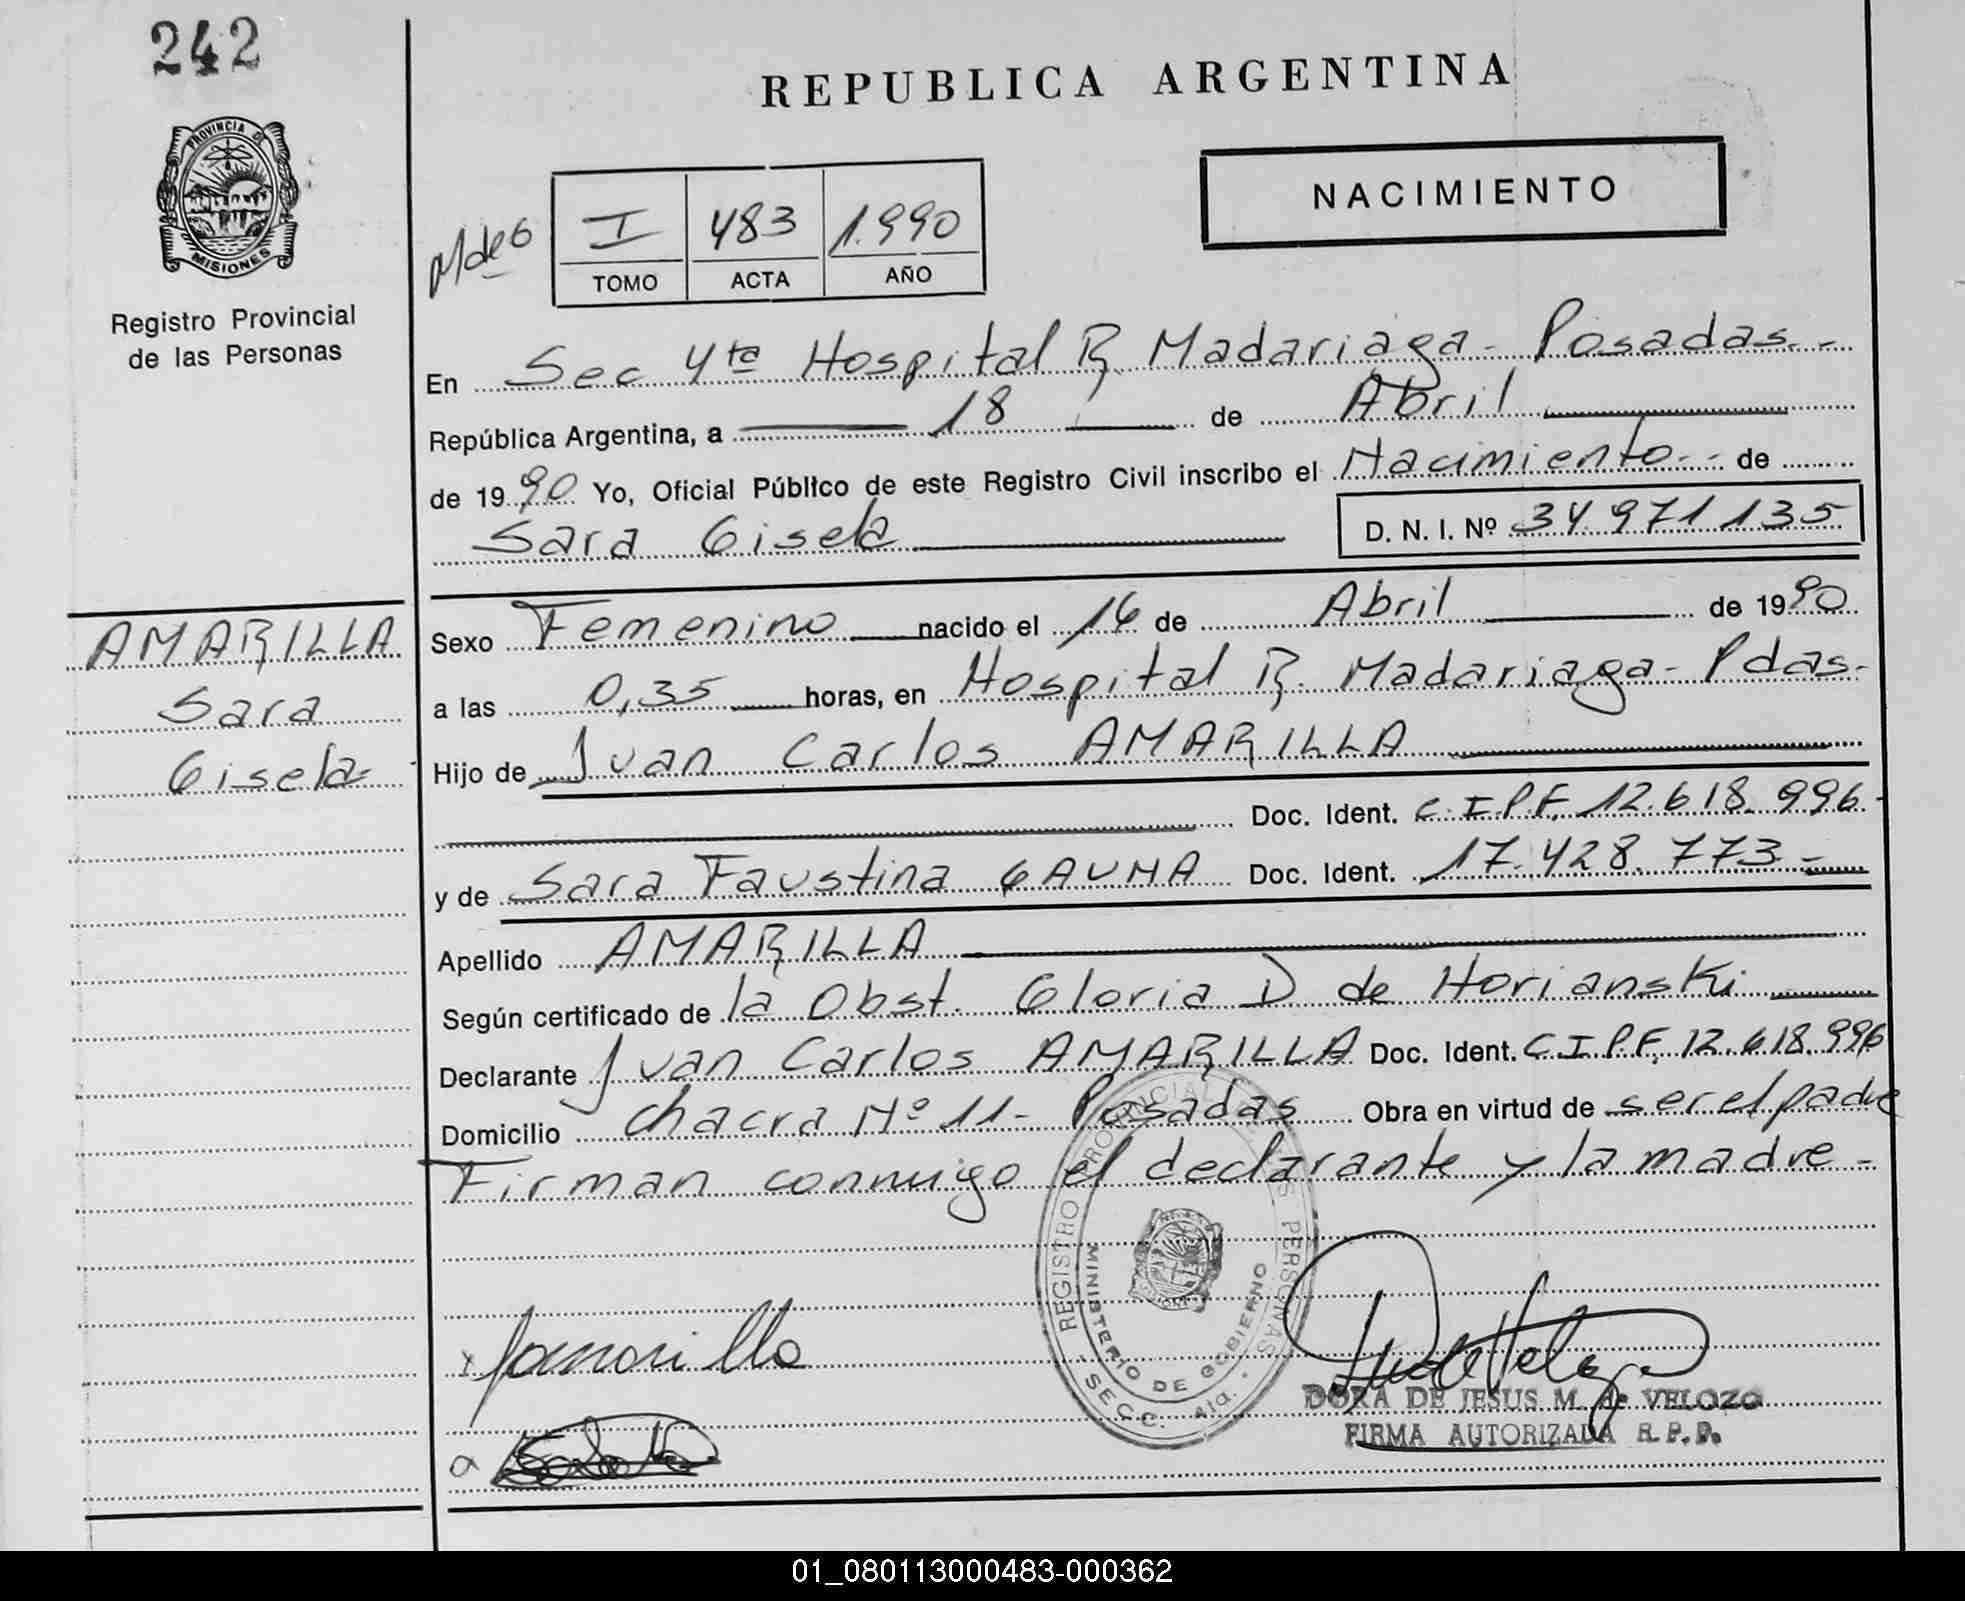 242
REPUBLICA ARGENTINA
NACIMIENTO
PROVINCIA DE
MISIONES
Registro Provincial
de las Personas
I 483 1.990
TOMO ACTA AÑO
En Sec 4ta Hospital R. Madariaga - Posadas.-
República Argentina, a 18 de Abril
de 1990 Yo, Oficial Público de este Registro Civil inscribo el Nacimiento.- de
Sara Gisela D. N. I. Nº 34 971 135
AMARILLA
Sara
Gisela-
Sexo Femenino nacido el 16 de Abril de 1990
a las 0,35 horas, en Hospital R. Madariaga - Pdas-
Hijo de Juan Carlos AMARILLA
Doc. Ident. C.I.P.F. 12.618.996-
y de Sara Faustina GAUNA Doc. Ident. 17.428.773.-
Apellido AMARILLA
Según certificado de la Obst. Gloria D de Horianski
Declarante Juan Carlos AMARILLA Doc. Ident. C.I.P.F. 12.618.996
Domicilio Chacra Nº 11- Posadas Obra en virtud de ser el padre
Firman conmigo el declarante y la madre-
REGISTRO PROVINCIAL DE LAS PERSONAS
MINISTERIO DE GOBIERNO
- SECC. 4ta. -
DORA DE JESUS M. de VELOZO
FIRMA AUTORIZADA R. P. P.
01_080113000483-000362